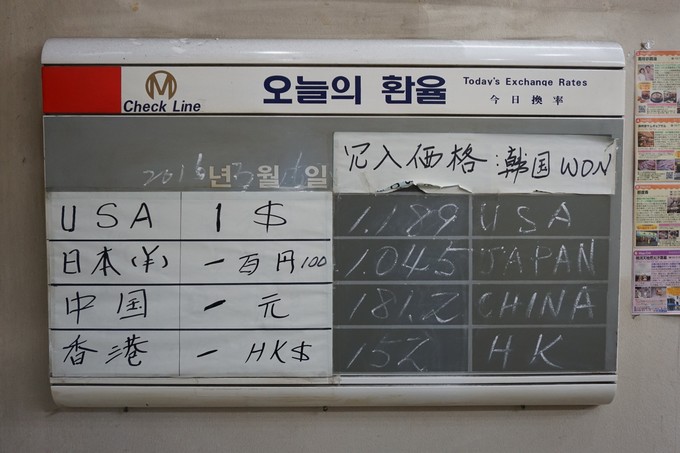 M
Check Line
오늘의 환율
Today's Exchange Rates
今日換率
2016년 3월 일
买入価格:韩国 WON
USA 1 $ 1.189 USA
日本(¥) 一百円100 1.045 JAPAN
中国 一元 181.2 CHINA
香港 一HK$ 152 HK